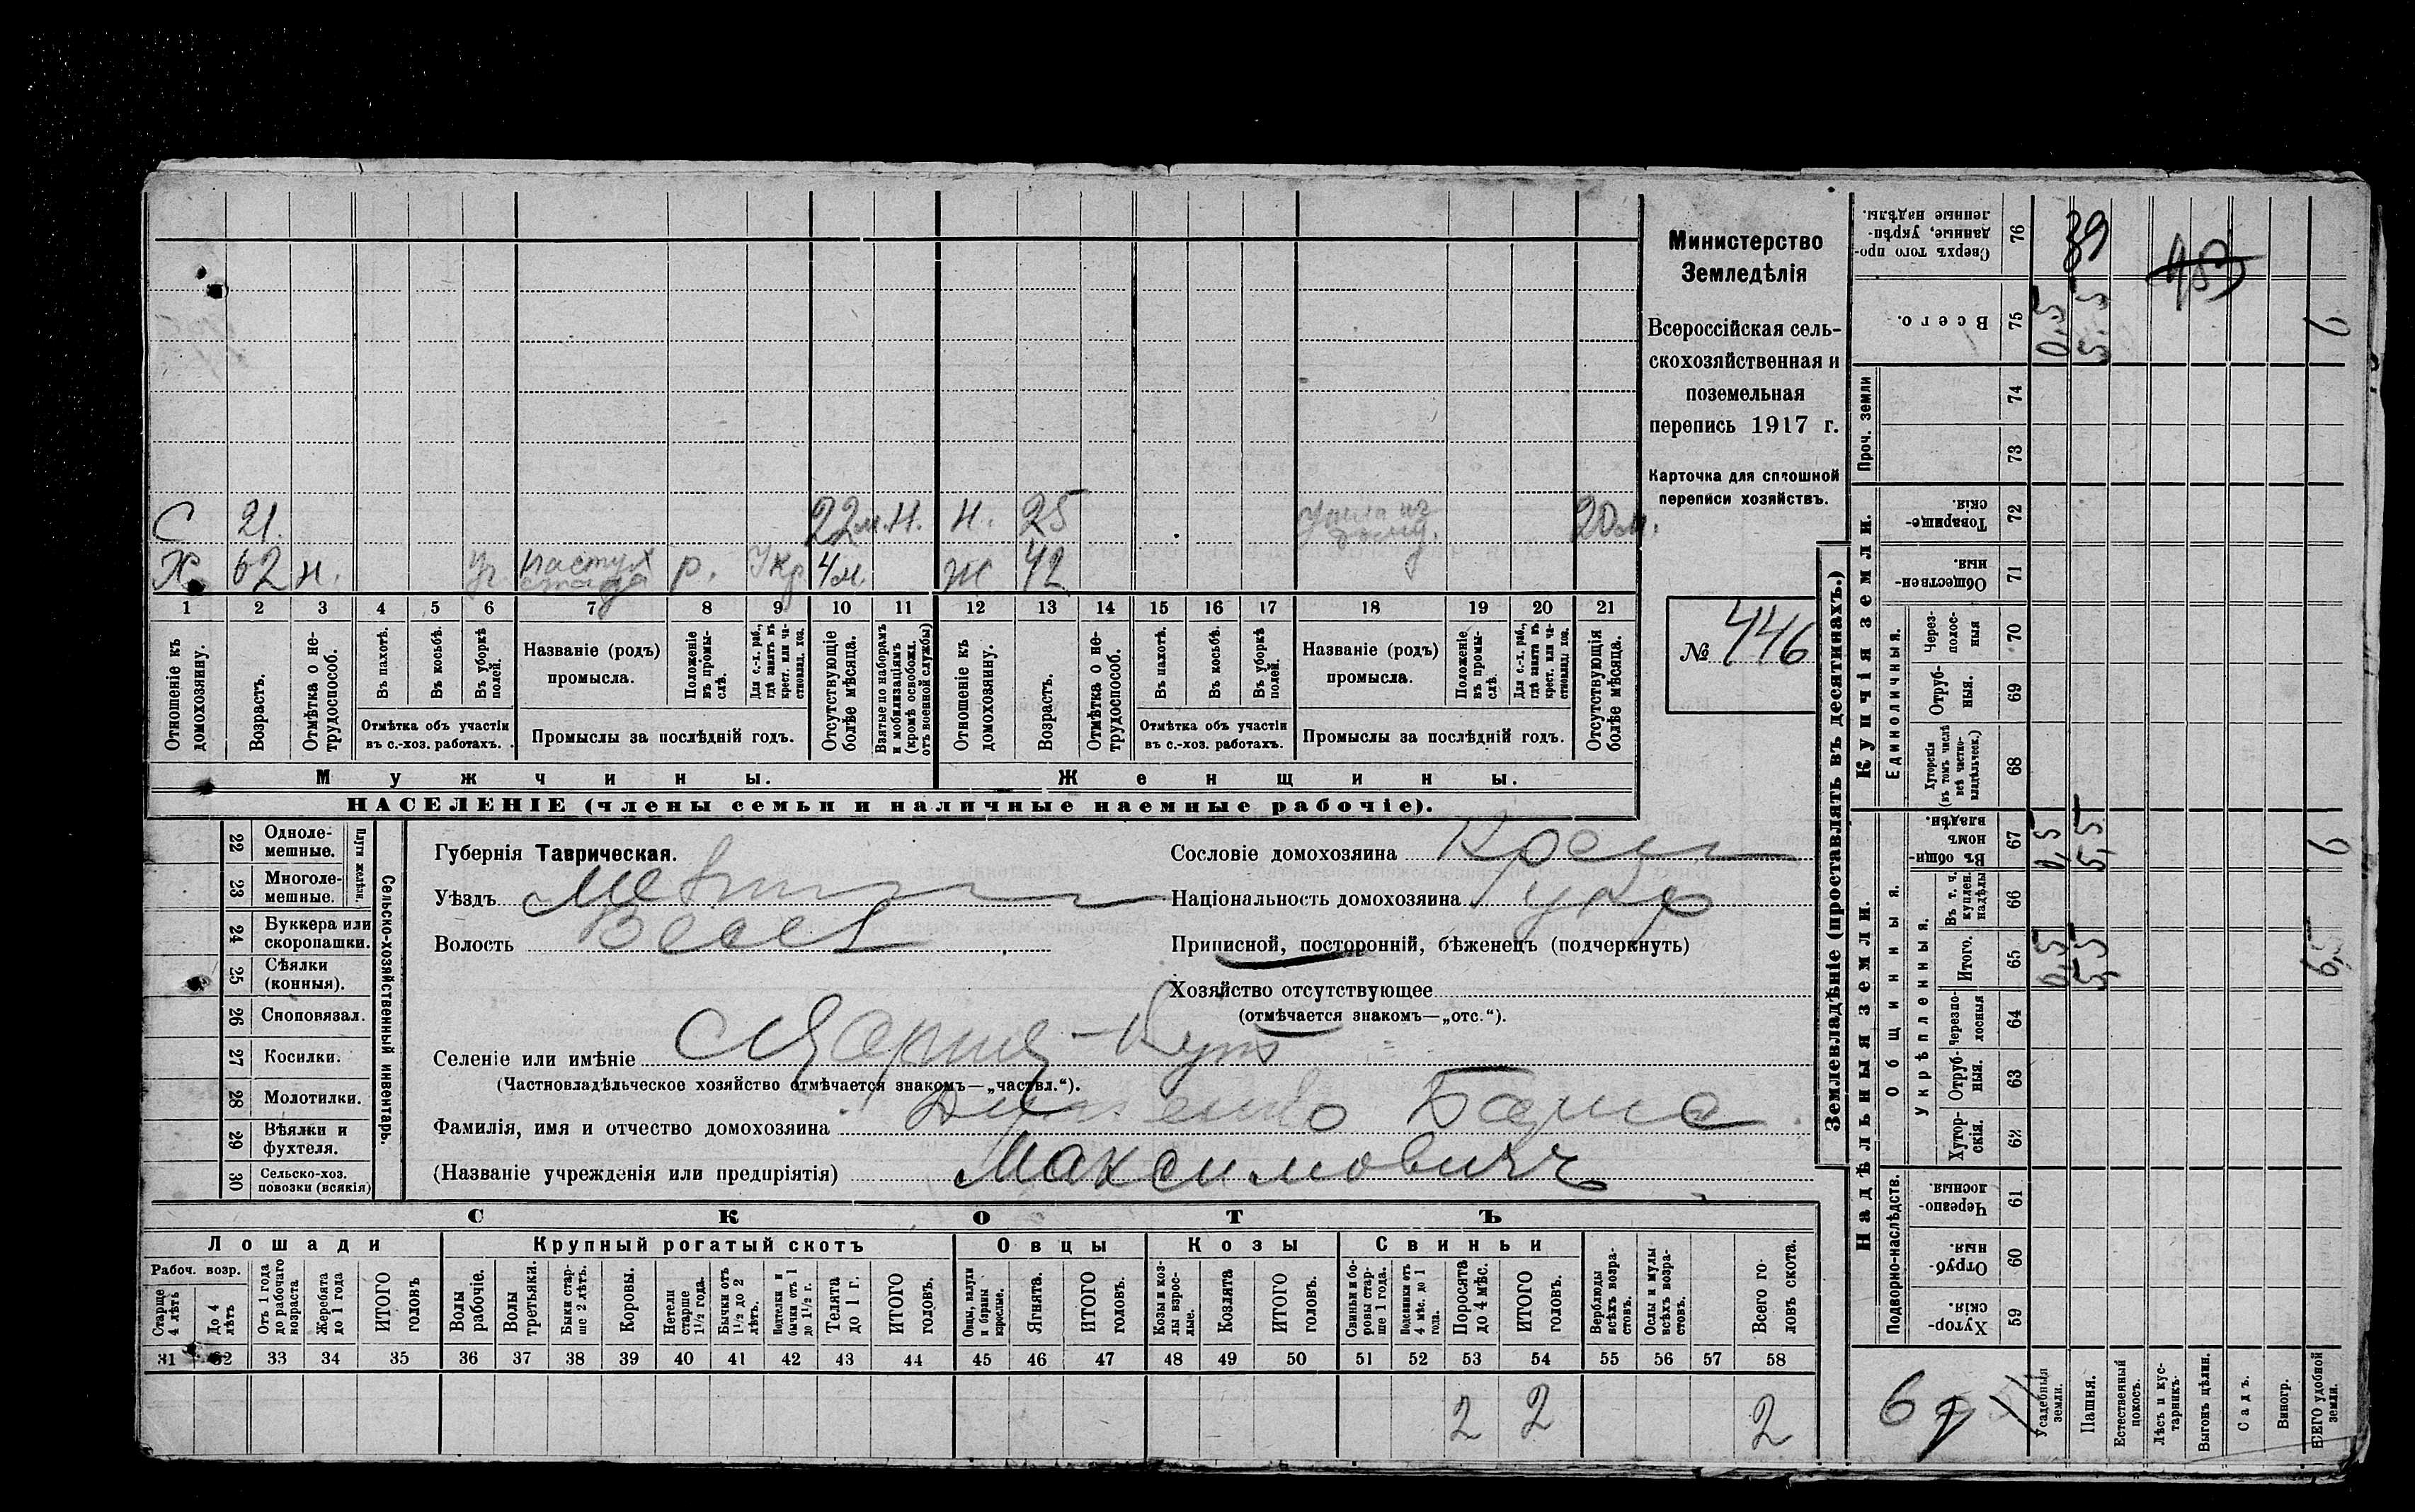 С 21. 22 м. Н. Н. 25 20 м.
Х 62 н. Уг пастух стада р. Укр 4 м. Ж 42
1 2 3 4 5 6 7 8 9 10 11 12 13 14 15 16 17 18 19 20 21
Отношеніе къ домохозяину.
Возрастъ.
Отмѣтка о нетрудоспособ.
Въ пахотѣ.
Въ косьбѣ.
Въ уборкѣ полей.
Отмѣтка объ участіи
въ с.-хоз. работахъ.
Названіе (родъ)
промысла.
Положеніе въ промыслѣ.
Для с.-х. раб., гдѣ занятъ въ крест. или частновлад. хоз.
Промыслы за послѣдній годъ.
Отсутствующіе болѣе мѣсяца.
Взятые по наборамъ и мобилизаціямъ (кромѣ освобожд. отъ военной службы)
Отношеніе къ домохозяину.
Возрастъ.
Отмѣтка о нетрудоспособ.
Въ пахотѣ.
Въ косьбѣ.
Въ уборкѣ полей.
Отмѣтка объ участіи
въ с.-хоз. работахъ.
Названіе (родъ)
промысла.
Положеніе въ промыслѣ.
Для с.-х. раб., гдѣ занята въ крест. или частновлад. хоз.
Промыслы за послѣдній годъ.
Отсутствующія болѣе мѣсяца.
Мужчины. Женщины.
НАСЕЛЕНІЕ (члены семьи и наличные наемные рабочіе).
Министерство
Земледѣлія
Всероссійская сель-
скохозяйственная и
поземельная
перепись 1917 г.
Карточка для сплошной
переписи хозяйствъ.
№ 446
22 Одноле-
мешные.
23 Многоле-
мешные.
Плуги желѣзн.
24 Буккера или
скоропашки.
25 Сѣялки
(конныя).
26 Сноповязал.
27 Косилки.
28 Молотилки.
29 Вѣялки и
фухтеля.
30 Сельско-хоз.
повозки (всякія)
Сельско-хозяйственный инвентарь.
Губернія Таврическая.
Уѣздъ
Волость Весел
Селеніе или имѣніе
(Частновладѣльческое хозяйство отмѣчается знакомъ—„частвл.“).
Фамилія, имя и отчество домохозяина
(Названіе учрежденія или предпріятія) Максимовичъ
Сословіе домохозяина
Національность домохозяина
Приписной, посторонній, бѣженецъ (подчеркнуть)
Хозяйство отсутствующее
(отмѣчается знакомъ—„отс.“).
СКОТЪ
Лошади Крупный рогатый скотъ Овцы Козы Свиньи
Рабоч. возр.
Старше 4 лѣтъ
До 4 лѣтъ
Отъ 1 года до рабочаго возраста
Жеребята до 1 года
ИТОГО головъ
Волы рабочіе.
Волы третьяки.
Быки старше 2 лѣтъ.
Коровы.
Нетели старше 1½ года.
Бычки отъ 1½ до 2 лѣтъ.
Подтелки и бычки отъ 1 до 1½ г.
Телята до 1 г.
ИТОГО головъ.
Овцы, валухи и бараны взрослые.
Ягнята.
ИТОГО головъ.
Козы и козлы взрослые.
Козлята
ИТОГО головъ.
Свиньи и боровы старше 1 года.
Подсвинки отъ 4 мѣс. до 1 года.
Поросята до 4 мѣс.
ИТОГО головъ.
Верблюды всѣхъ возрастовъ.
Ослы и мулы всѣхъ возрастовъ.
Всего головъ скота.
31 32 33 34 35 36 37 38 39 40 41 42 43 44 45 46 47 48 49 50 51 52 53 54 55 56 57 58
2 2 2
Землевладѣніе (проставлять въ десятинахъ.)
Надѣльныя земли. Купчія земли. Проч. земли
Подворно-наслѣдств. Общинныя. Единоличныя.
Укрѣпленныя.
Хуторскія. 59
Отрубныя. 60
Черезполосныя. 61
Хуторскія. 62
Отрубныя. 63
Черезполосныя 64
Итого. 65 0,5 5,5 6,5
Въ т. ч. куплен. надѣлы 66
Въ общинномъ владѣн. 67 0,5 5,5
Хуторскія (въ томъ числѣ всѣ частновладѣльческ.) 68
Отрубныя. 69
Черезполосныя 70
Общественныя. 71
Товарищескія. 72
73
74
Всего. 75 0,5 5,5
Сверхъ того проданные, укрѣпленные надѣлы. 76
39
Усадебныя земли.
Пашня.
Естественный покосъ.
Лѣсъ и кустарникъ.
Выгонъ цѣлин.
Садъ.
Виногр.
ВСЕГО удобной земли.